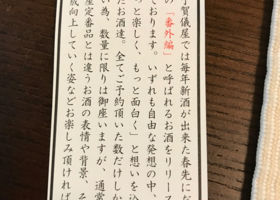 賀儀屋では毎年新酒が出来た春先に
の「番外編」と呼ばれるお酒をリリース
ております。いずれも自由な発想の中、
っと楽しく、もっと面白く」と想いを込
たお酒達。全てご予約頂いた数だけしか
い為、数量に限りは御座いますが、通常
屋定番品とは違うお酒の表情や背景、そ
成向上していく姿などお楽しみ頂ければ